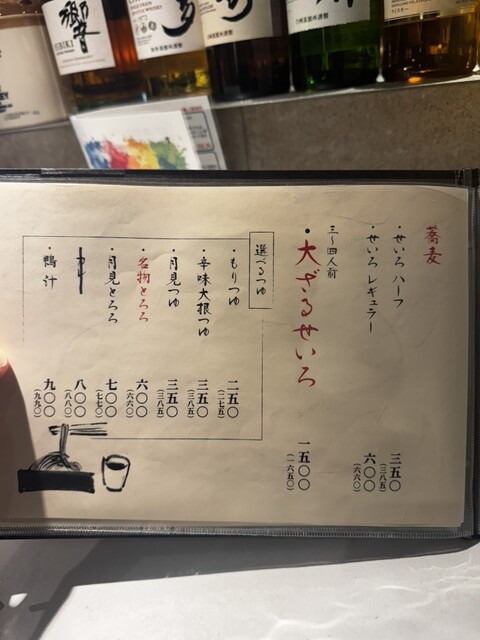 響
HIBIKI
蕎麦
・せいろ ハーフ 三五〇
(三八五)
・せいろ レギュラー 六〇〇
(六六〇)
三〜四人前
・大ざるせいろ 一五〇〇
(一六五〇)
選べるつゆ
・もりつゆ 二五〇
(二七五)
・辛味大根つゆ 三五〇
(三八五)
・月見つゆ 三五〇
(三八五)
・名物とろろ 六〇〇
(六六〇)
・月見とろろ 七〇〇
(七七〇)
八〇〇
(八八〇)
・鴨汁 九〇〇
(九九〇)